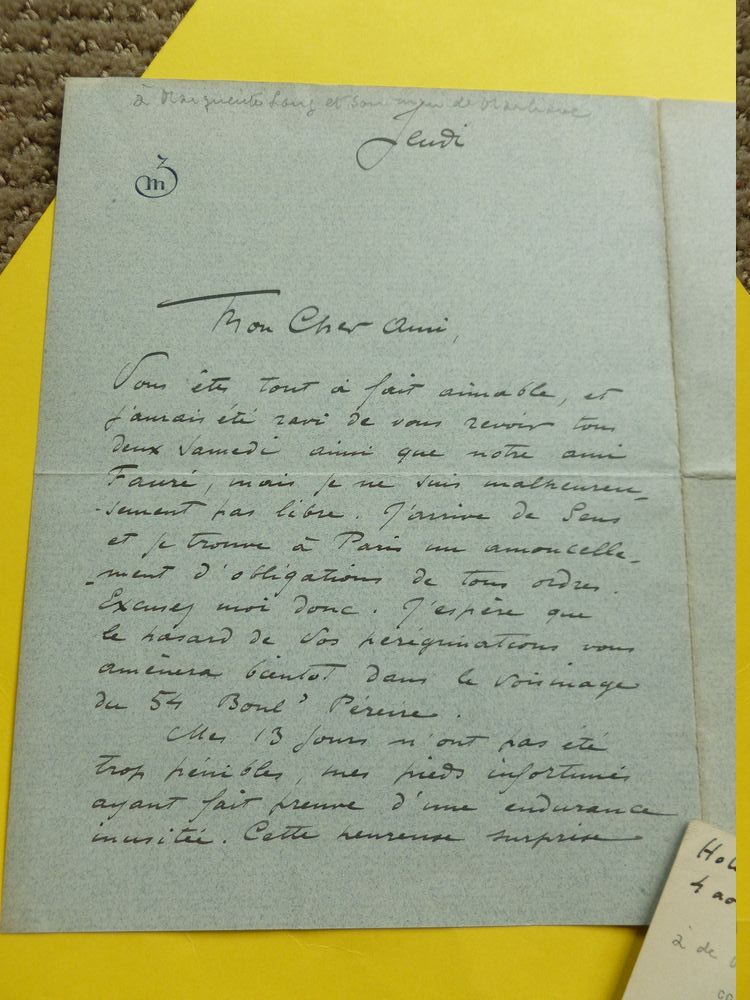 à Marguerite Long et son mari de Marliave
Jeudi
Mon Cher Ami,
Vous êtes tout à fait aimable, et
j'aurais été ravi de vous revoir tous
deux samedi ainsi que notre ami
Fauré, mais je ne suis malheureu-
-sement pas libre. J'arrive de Sens
et je trouve à Paris un amoncelle-
-ment d'obligations de tous ordres.
Excusez moi donc. J'espère que
le hasard de vos pérégrinations vous
amènera bientôt dans le voisinage
du 54 Boulᵈ Péreire.
Mes 13 jours n'ont pas été
trop pénibles, mes pieds infortunés
ayant fait preuve d'une endurance
inusitée. Cette heureuse surprise
4 ao
à de